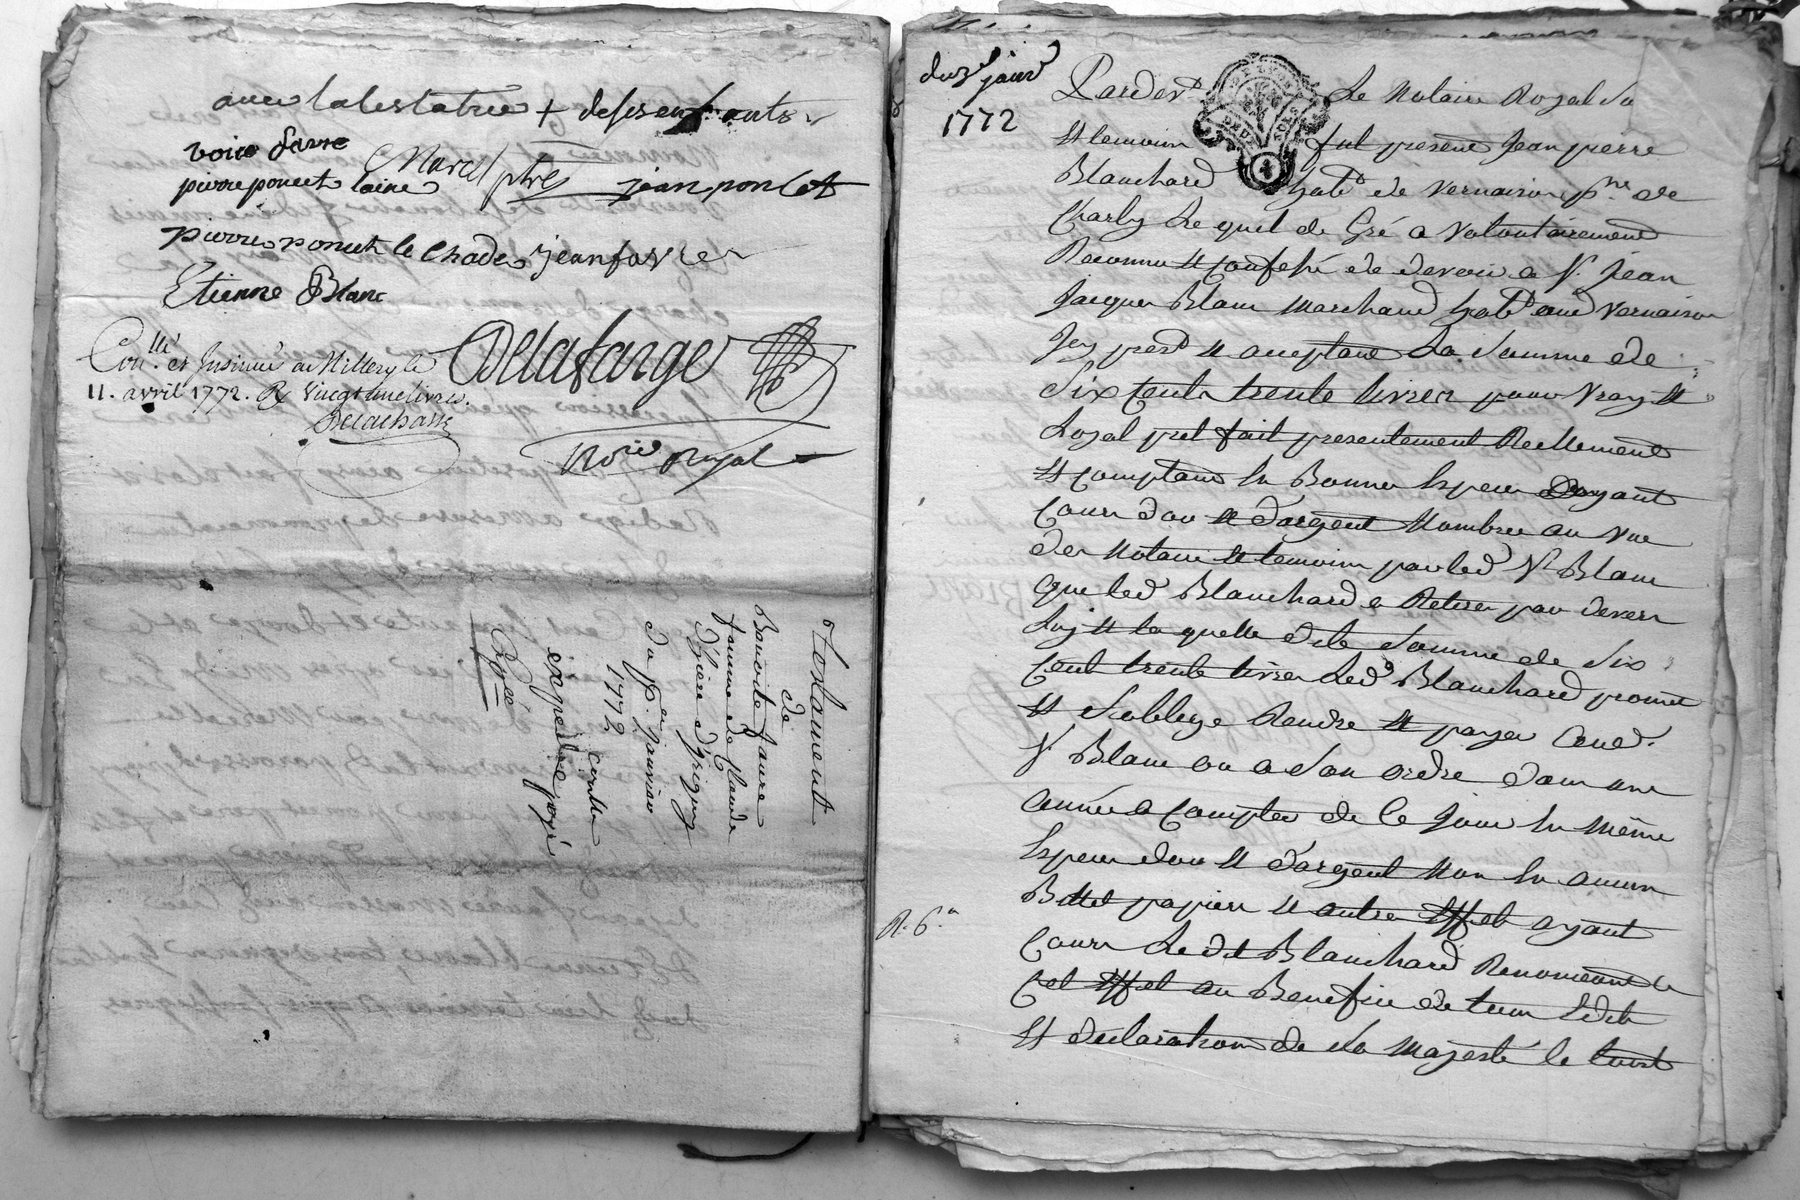 avec la testatrice + de ses enfants
pierre poncet laine Marcel ptre jean poncet
pierre poncet le Chade jean favre
Etienne Blanc
Con.llé et Insinué au Millery le
11. avril 1772. R Vingt une livres.
Delachasse
Delafarge
No.re Royal
Testament
de
Benoite faure
femme de Claude
du 3 Janvier
1772
controllé
expedié payé
du 3 janv.
1772
Pardev.t Le Notaire Royal So
& temoins fut present Jean pierre
Blanchard hab.t de Vernaison p.sse de
Charly Le quel de Gré a Volontairement
Reconnu & Confessé de devoir a S.r Jean
Jacques Blanc Marchand hab.t aud Vernaison
Icy pres.t & acceptant La Somme de
Six Cents trente livres pour Vray &
Loyal pret fait presentement Reellement
& Comptant En Bonnes Especes ayant
Cours d'or & d'argent Nombrée au Vue
des Notaire & temoins par led S.r Blanc
que led Blanchard a Retirée par devers
Luy & la quelle dite Somme de Six
Cent trente livres Led Blanchard promet
& S'oblige Rendre & payer aud.
S.r Blanc ou a Son ordre dans une
année a Compter de Ce jour En même
Especes d'or & d'argent Non En aucun
Billet papiers & autres Effets ayant
R. 6.s
Cours Led.t Blanchard Renoncant a
Cet Effet au Benefice de tous Edits
& declarations de Sa Majesté le tout